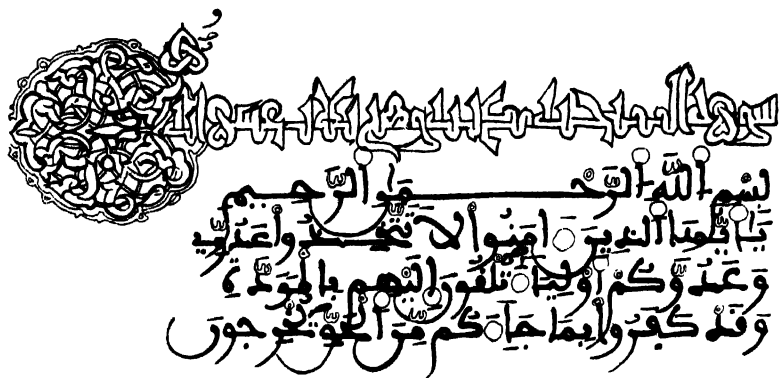 سورة وهي عشرة
بِسْمِ اللَّهِ الرَّحْمَنِ الرَّحِيمِ
يَأَيُّهَا الَّذِينَ ءَامَنُوا لَا تَتَّخِذُوا عَدُوِّي
وَعَدُوَّكُمْ أَوْلِيَاءَ تُلْقُونَ إِلَيْهِمْ بِالْمَوَدَّةِ
وَقَدْ كَفَرُوا بِمَا جَاءَكُمْ مِنَ الْحَقِّ يُخْرِجُونَ